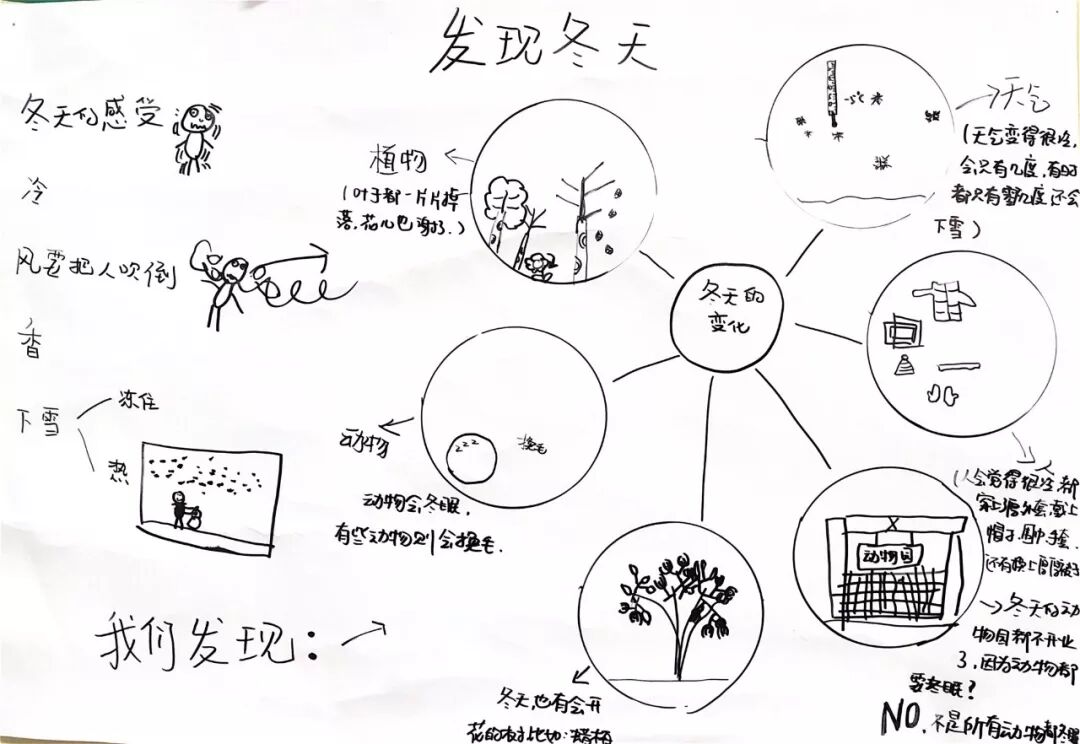 发现冬天
冬天的感受
冷
风要把人吹倒
香
下雪
冻住
热
我们发现:
植物
(叶子都一片片掉
落,花儿也谢了.)
-5℃
天气
(天气变得很冷,
会只有几度,有时
都只有零几度,还会
下雪)
冬天的
变化
人
(人会觉得很冷,都
外套,戴上
帽子、围巾、手套、
还有换上
动物
zzz
换毛
动物会冬眠,
有些动物则会换毛.
动物园
冬天的动
物园都不开业
了,因为动物都
要冬眠?
NO,不是所有动物都冬眠
冬天也有会开
花的树比如:腊梅